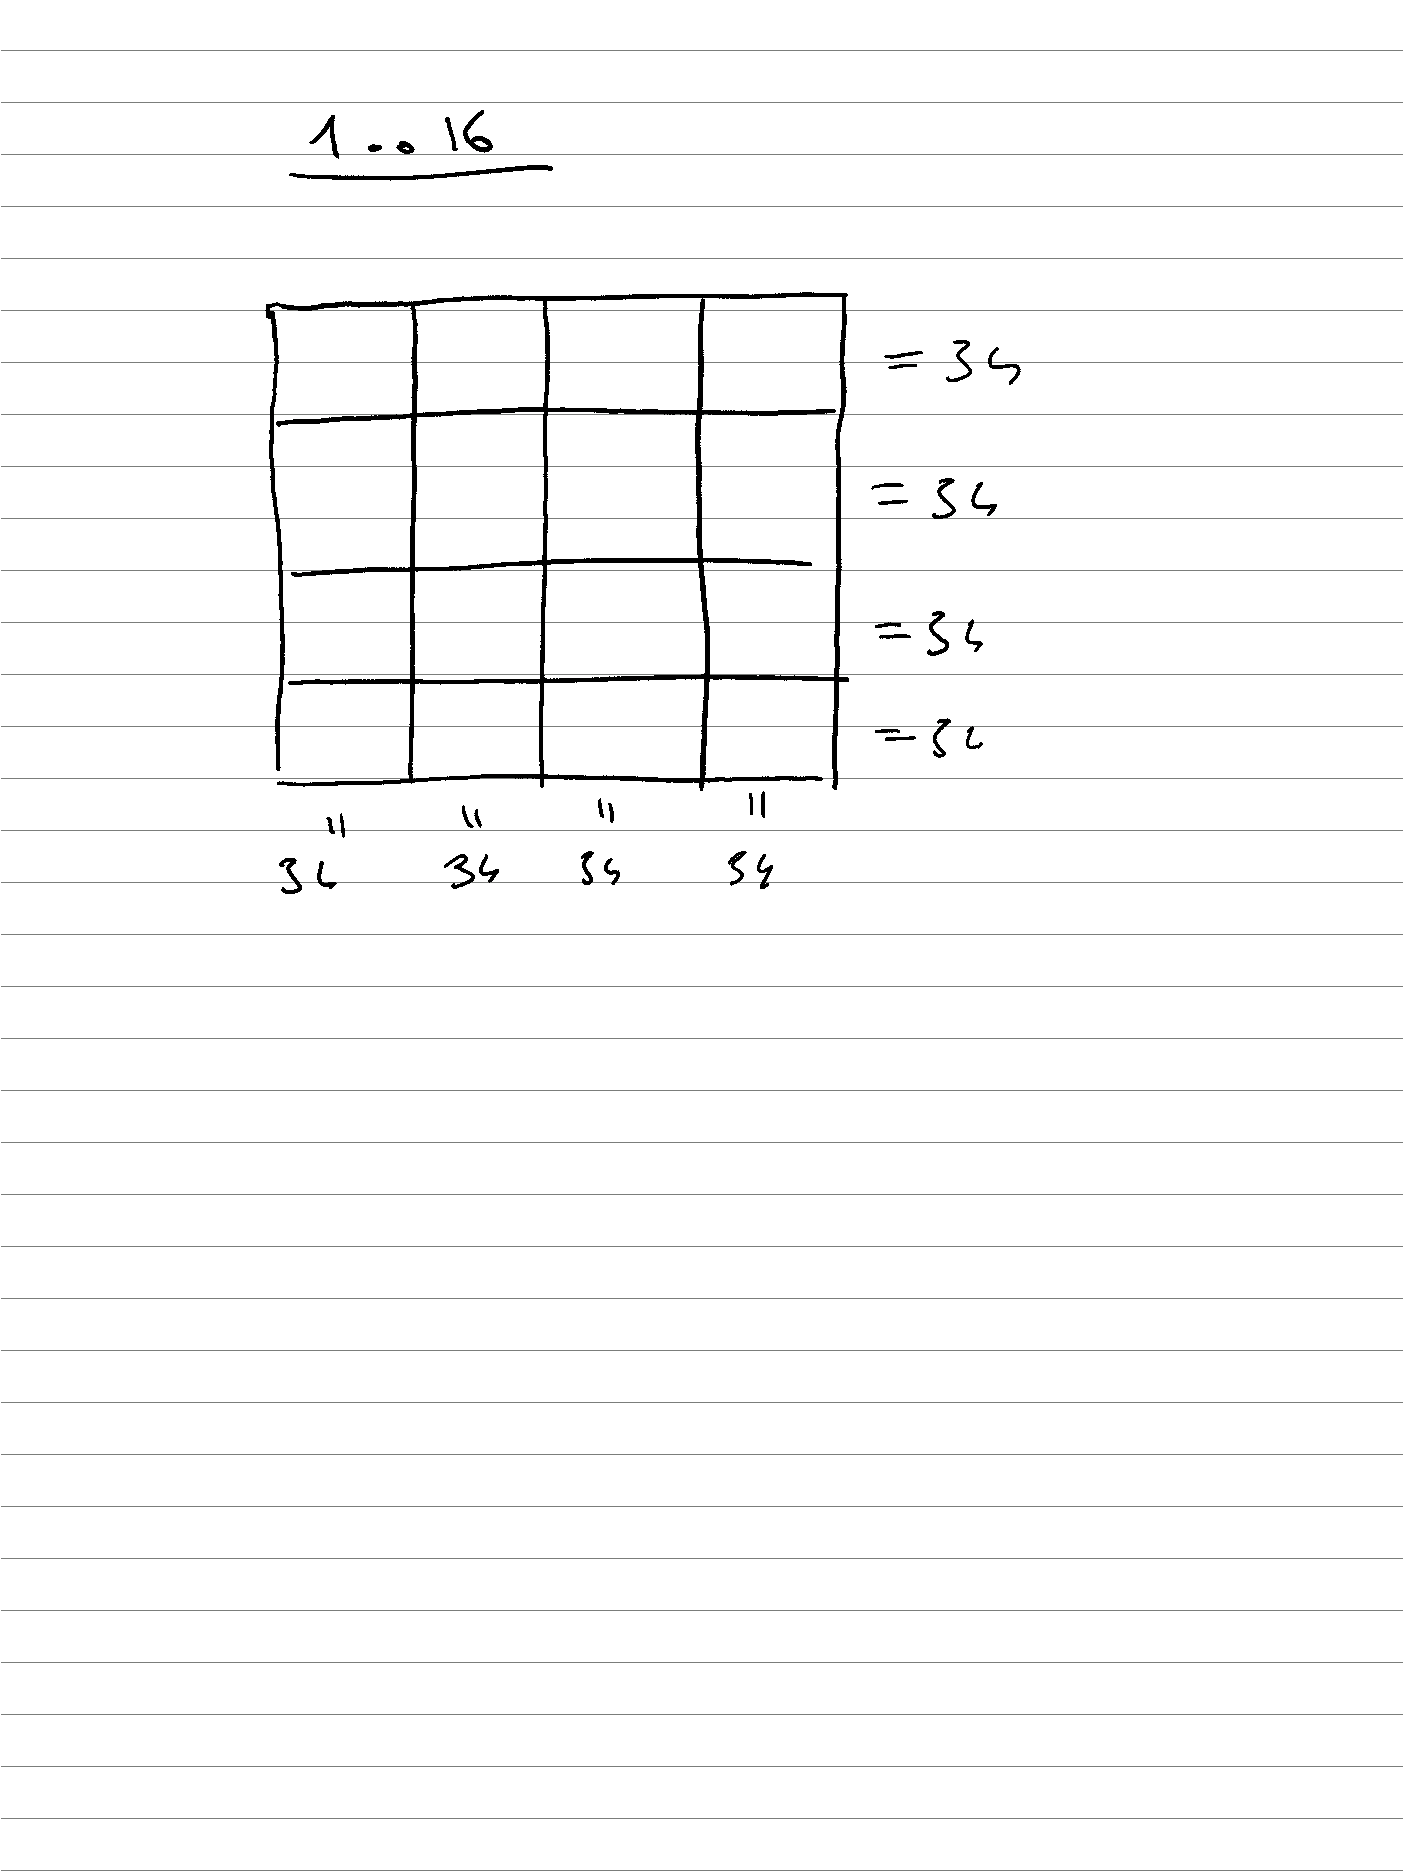 1..16
= 34
= 34
= 34
= 34
" " " "
34 34 34 34